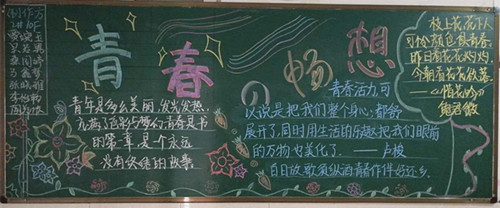 制作方
青春的畅想
青年是多么美丽,发光发热,
充满了色彩与梦幻,青春是书
的第一章,是个永远
没有终结的故事
青春活力可
以说是把我们整个身心都舒
展开了,同时用生活的乐趣把我们眼前
的万物也美化了。——卢梭
白日放歌须纵酒青春作伴好还乡
枝上花,花下人
可怜颜色俱青春
昨日看花花灼灼
今朝看花花欲落
——《惜花吟》
鲍君徽